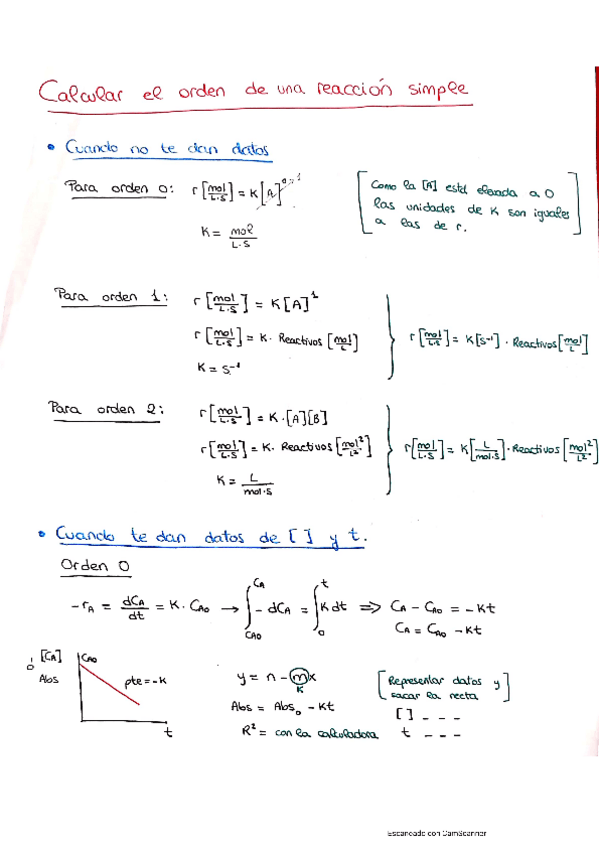 Calcular el orden de una reacción simple
• Cuando no te dan datos
Para orden 0: r [mol/L·S] = K[A]⁰ → 1
K = mol/L·S
[Como la [A] está elevada a 0
las unidades de K son iguales
a las de r.]
Para orden 1: r [mol/L·S] = K[A]¹
r [mol/L·S] = K· Reactivos [mol/L]
K = S⁻¹
r [mol/L·S] = K[S⁻¹] · Reactivos [mol/L]
Para orden 2: r [mol/L·S] = K·[A][B]
r [mol/L·S] = K· Reactivos [mol²/L²]
K = L/mol·S
r [mol/L·S] = K[L/mol·S] · Reactivos [mol²/L²]
• Cuando te dan datos de [ ] y t.
Orden 0
-rA = dCA/dt = K · CA0 → ∫CA0^CA - dCA = ∫0^t K dt ⇒ CA - CA0 = -Kt
CA = CA0 - Kt
[CA] ó Abs
CA0
pte = -K
t
y = n - mx
K
Abs = Abs0 - Kt
R² = con la calculadora
[Representar datos y
sacar la recta]
[ ] - - -
t - - -
Escaneado con CamScanner